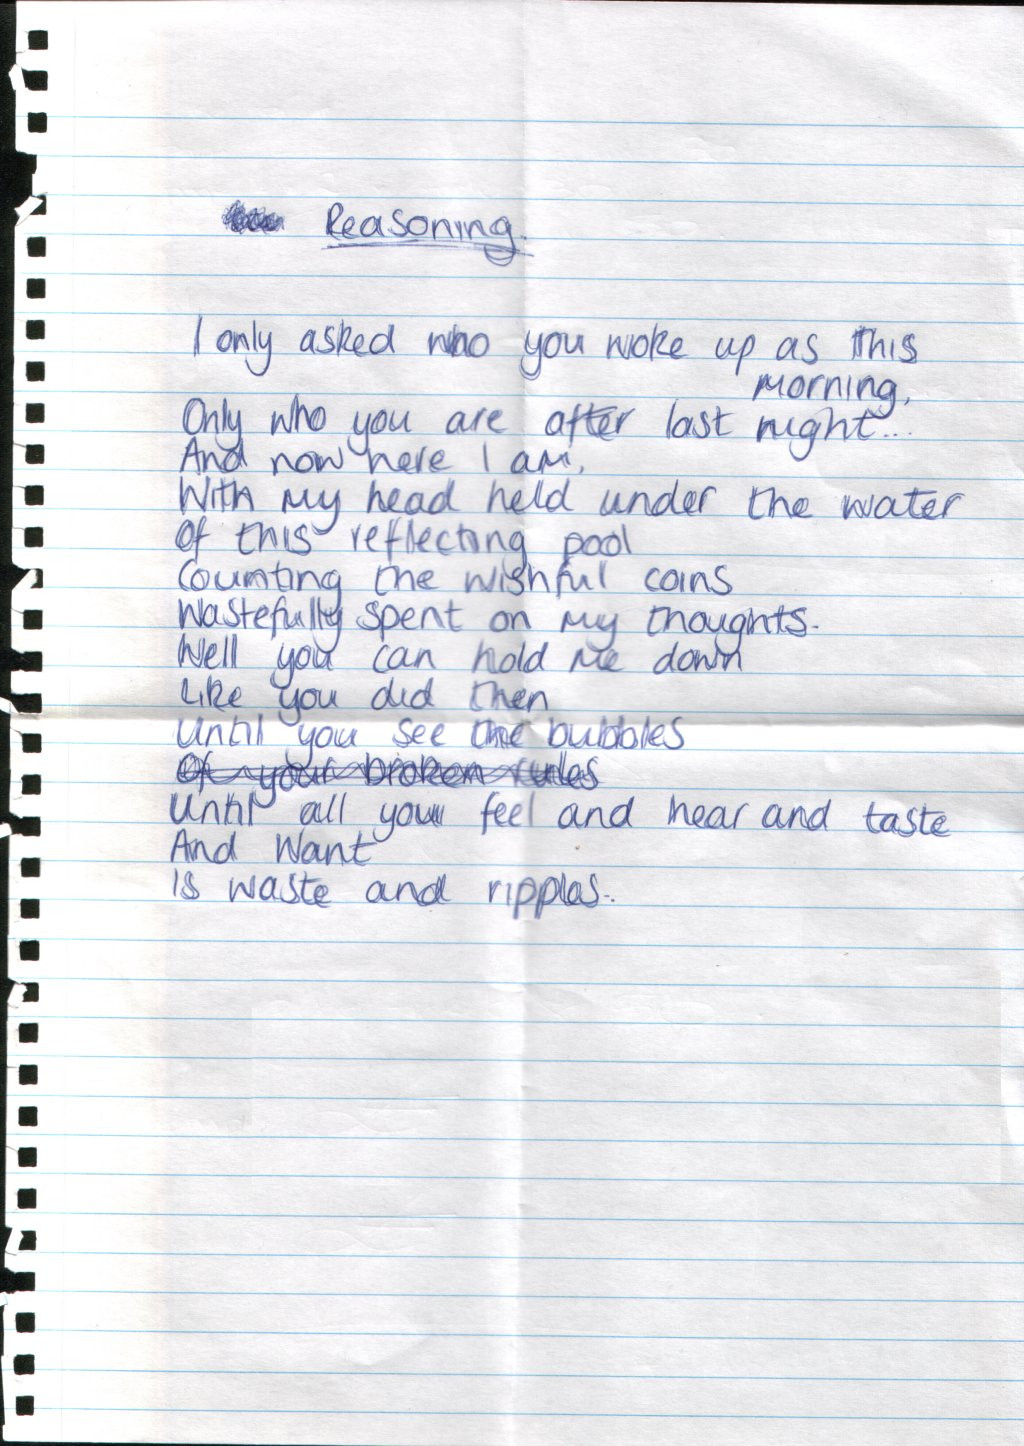 Reasoning.
I only asked who you woke up as this
morning,
Only who you are after last night...
And now here I am,
With my head held under the water
Of this reflecting pool
Counting the wishful coins
Wastefully spent on my thoughts.
Well you can hold me down
Like you did then
Until you see the bubbles
Of your broken rules
Until all you feel and hear and taste
And Want
Is waste and ripples.